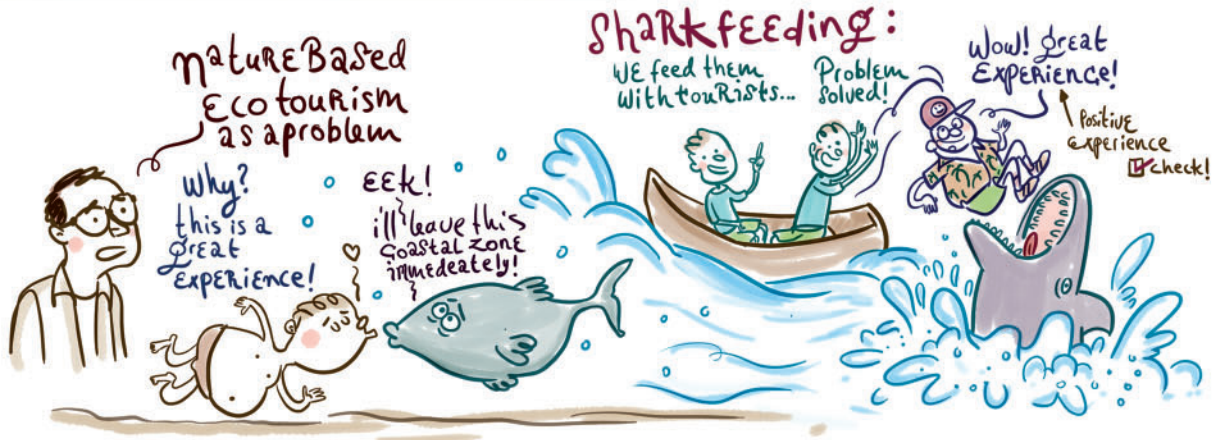 natuREBased
Ecotourism
as a problem
Why?
this is a
great
ExpERiEncE!
EEk!
i'll leave this
Coastal zone
immedeately!
ShaRkfEEding:
WE feed them
With touRists...
Problem
solved!
Wow! great
ExpERiEncE!
Positive
Experience
check!